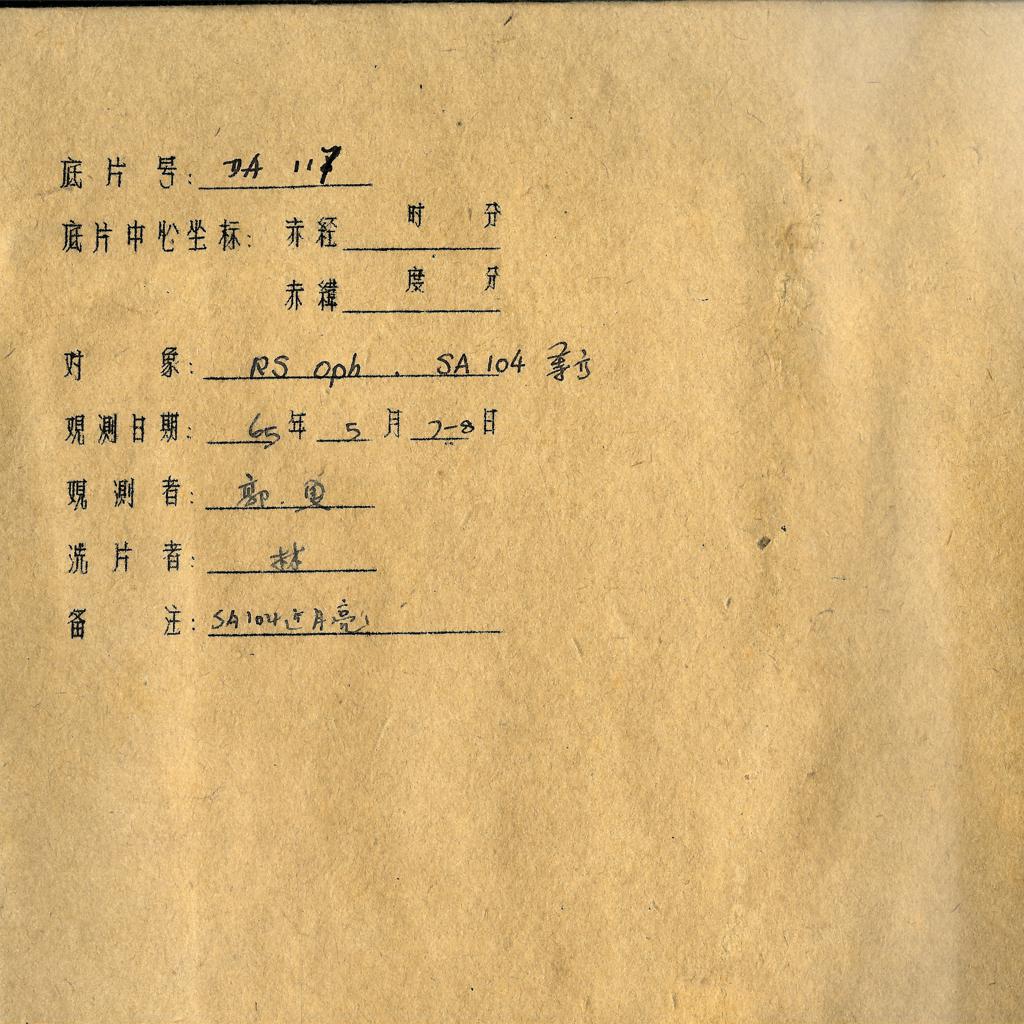 底片号: DA 117
底片中心坐标: 赤经 时 分
赤纬 度 分
对象: RS Oph . SA 104
观测日期: 65年 5月 7-8日
观测者: 郭.
洗片者: 林
备注: SA104近月亮